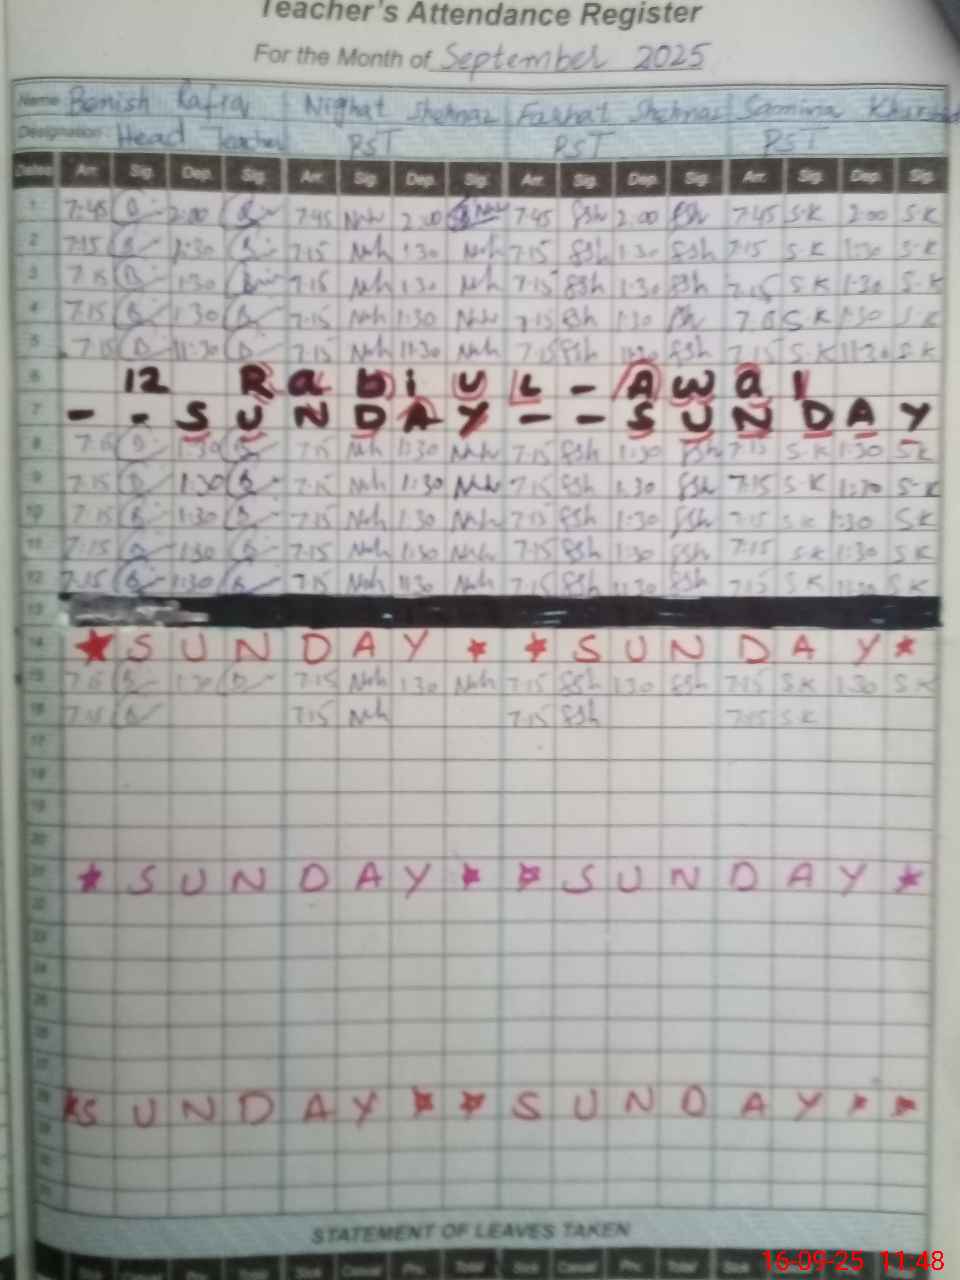 Teacher's Attendance Register
For the Month of September 2025
Name Benish Nighat Shehnaz Farhat Shehnaz Samina
Designation Head Teacher PST PST PST
Dates Arr. Sig. Dep. Sig. Arr. Sig. Dep. Sig. Arr. Sig. Dep. Sig. Arr. Sig. Dep. Sig.
1 7:45 2:00 7:45 Nah 2:00 7:45 fsh 2:00 fsh 7:45 S.K 2:00 S.K
2 7:15 1:30 7:15 Nah 1:30 Nah 7:15 fsh 1:30 fsh 7:15 S.K 1:30 S.K
3 7:15 1:30 7:15 Nah 1:30 Nah 7:15 fsh 1:30 fsh 7:15 S.K 1:30 S.K
4 7:15 1:30 7:15 Nah 1:30 Nah 7:15 fsh 1:30 S.K 1:30 S.K
5 7:15 11:30 7:15 Nah 11:30 Nah 7:15 fsh 11:30 fsh 7:15 S.K 11:30 S.K
6 12 Rabi UL - Awal
7 - - SUNDAY - - SUNDAY
8 1:30 7:15 Nah 1:30 Nah 7:15 fsh 1:30 fsh 7:15 S.K 1:30 S.K
9 7:15 1:30 7:15 Nah 1:30 Nah 7:15 fsh 1:30 fsh 7:15 S.K 1:30 S.K
10 7:15 1:30 7:15 Nah 1:30 Nah 7:15 fsh 1:30 fsh 7:15 S.K 1:30 S.K
11 7:15 1:30 7:15 Nah 1:30 Nah 7:15 fsh 1:30 fsh 7:15 S.K 1:30 S.K
12 7:15 11:30 7:15 Nah 11:30 Nah 7:15 fsh 11:30 fsh 7:15 S.K S.K
13
14 SUNDAY SUNDAY
15 1:30 7:15 Nah 1:30 Nah 7:15 fsh 1:30 fsh 7:15 S.K 1:30 S.K
16 7:15 7:15 Nah 7:15 fsh 7:15 S.K
17
18
19
20
21 SUNDAY SUNDAY
22
23
24
25
26
27
28 SUNDAY SUNDAY
29
30
31
STATEMENT OF LEAVES TAKEN
16-09-25 11:48